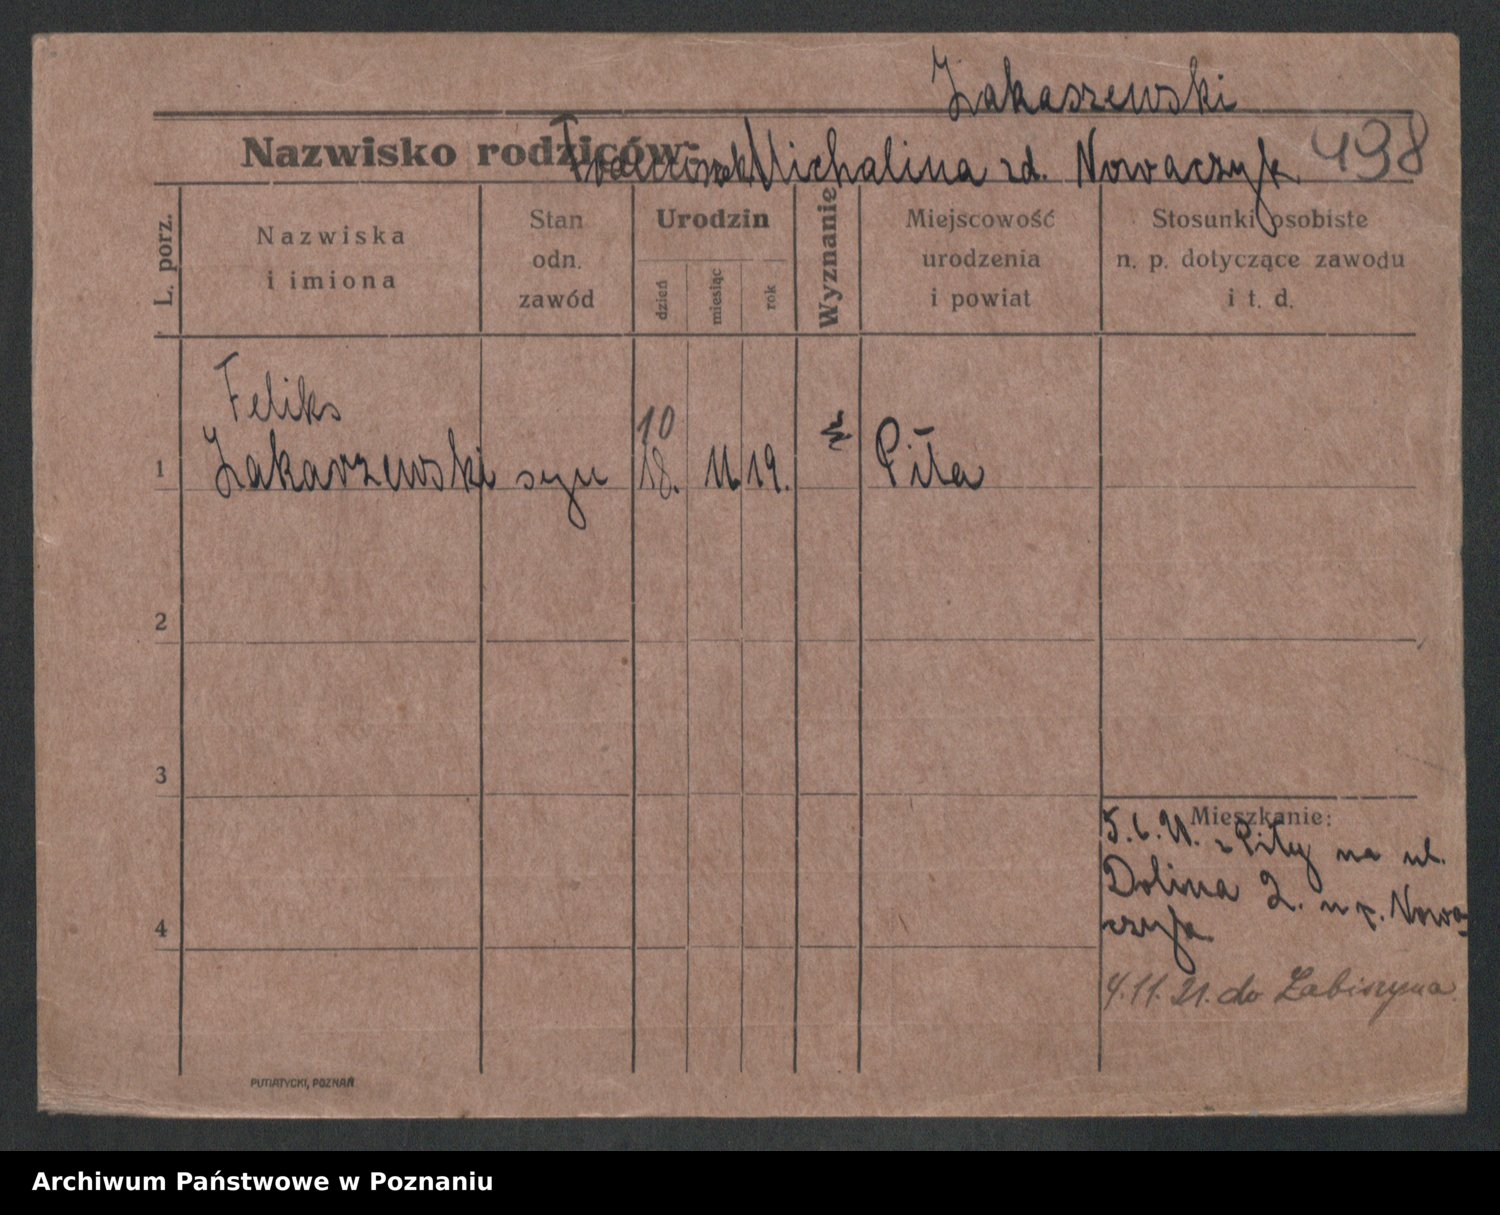 Zakaszewski
Nazwisko rodziców: Franciszek Michalina zd. Nowaczyk 498
L. porz.
Nazwiska
i imiona
Stan
odn.
zawód
Urodzin
dzień
miesiąc
rok
Wyznanie
Miejscowość
urodzenia
i powiat
Stosunki osobiste
n. p. dotyczące zawodu
i t. d.
Feliks
10
1 Zakarzewski syn 18. 11. 19. Piła
2
3
Mieszkanie:
5.6.21. z Piły na ul.
Dolina 2. u p. Nowa-
czyk
4
4.11.21. do Łabiszyna.
PUTIATYCKI, POZNAŃ
Archiwum Państwowe w Poznaniu